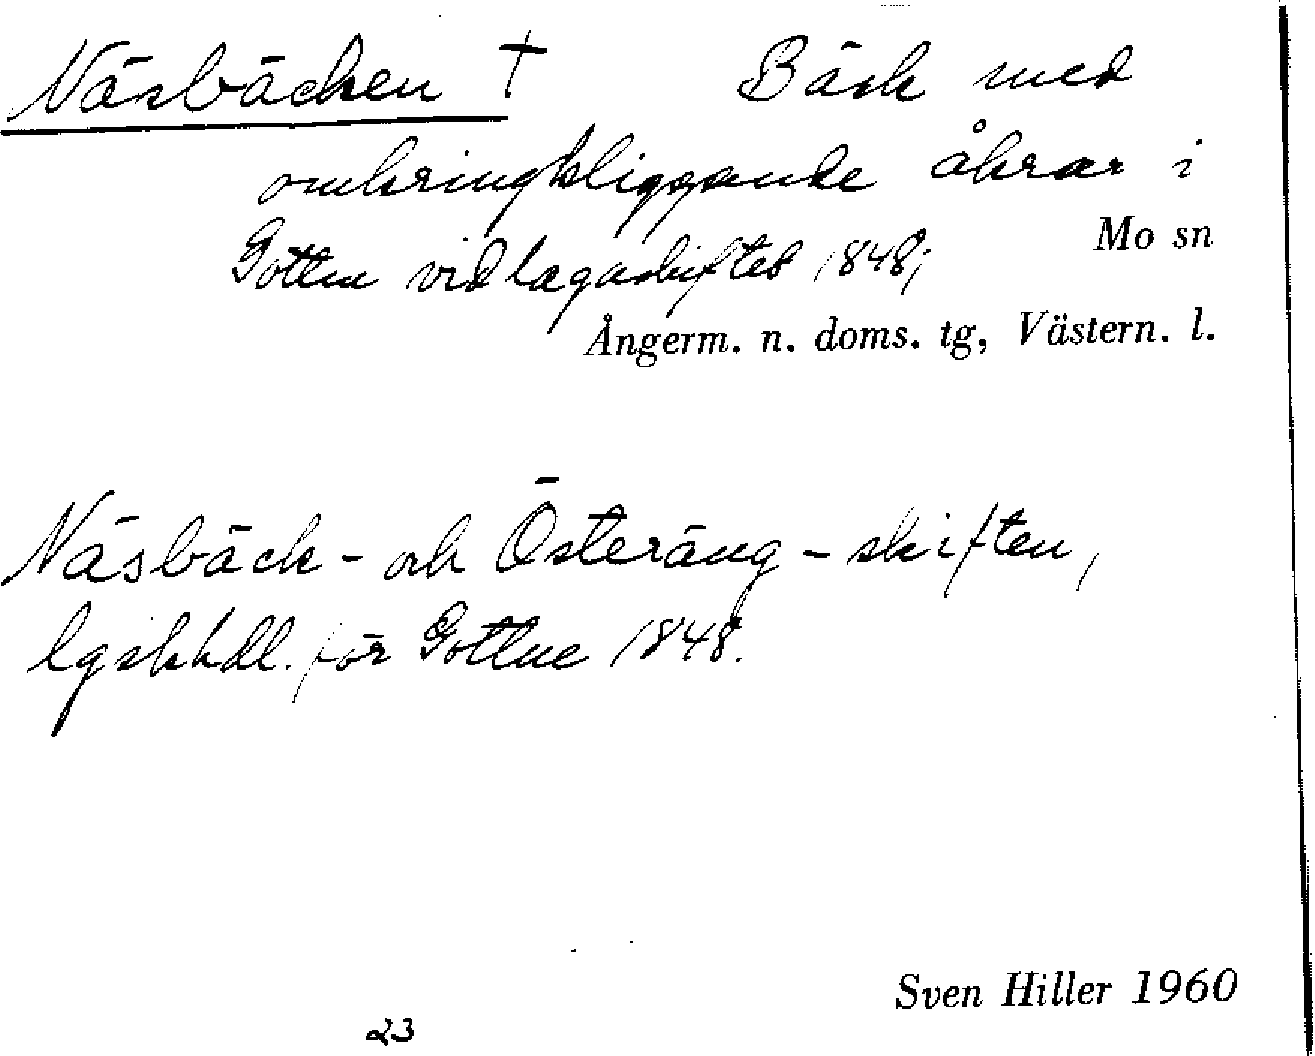 Näsbäcken † Bäck med
omkringkliggande åkrar i
Gottne vid lagaskiftet 1848;
Mo sn
Ångerm. n. doms. tg, Västern. l.
Näsbäck- och Österäng-skiften,
lgskhdl. för Gottne 1848.
Sven Hiller 1960
23